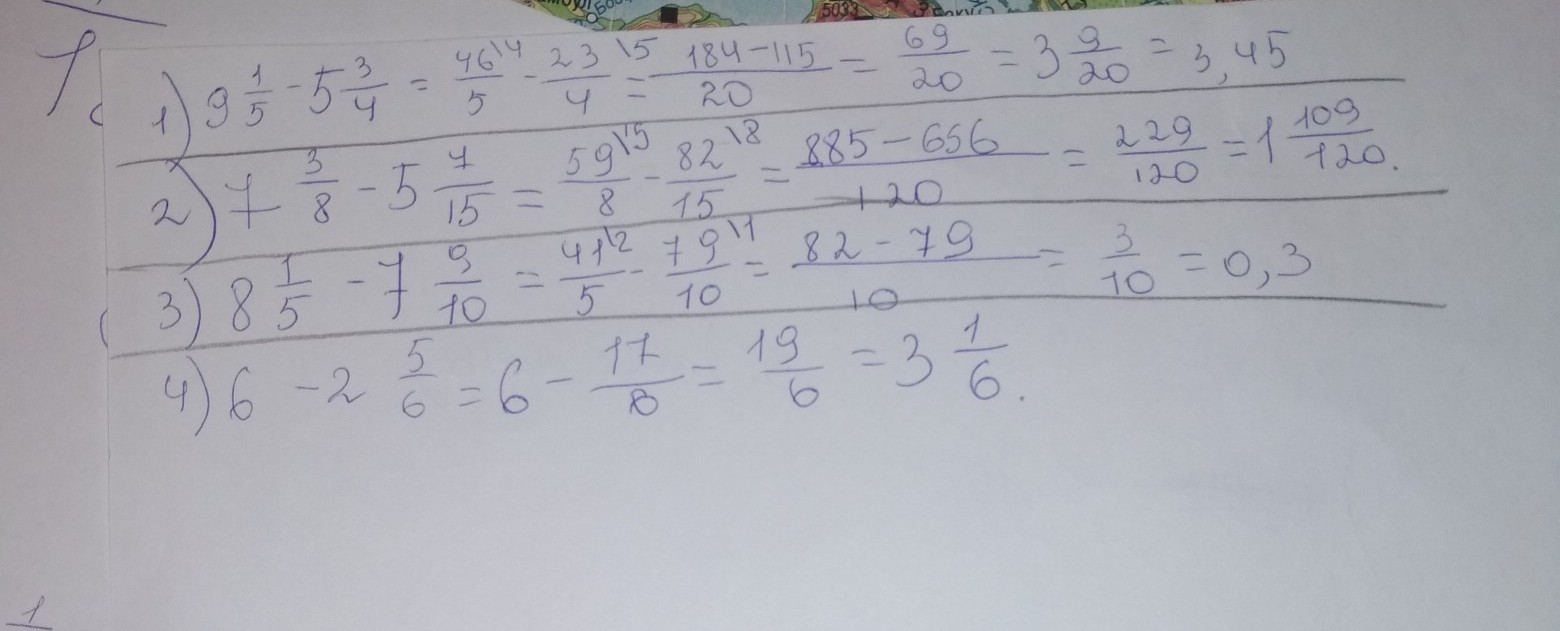 5033
1) 9 1/5 - 5 3/4 = 46\4/5 - 23\5/4 = 184-115/20 = 69/20 = 3 9/20 = 3,45
2) 7 3/8 - 5 7/15 = 59\15/8 - 82\8/15 = 885-656/120 = 229/120 = 1 109/120.
3) 8 1/5 - 7 9/10 = 41\2/5 - 79\1/10 = 82-79/10 = 3/10 = 0,3
4) 6 - 2 5/6 = 6 - 17/6 = 19/6 = 3 1/6.
1